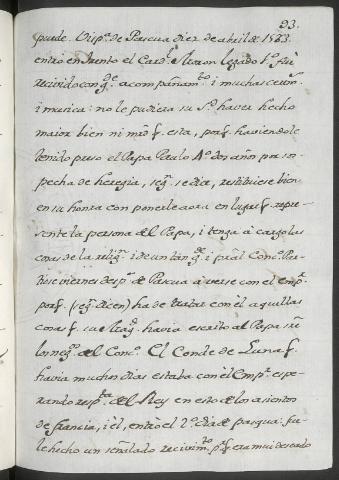 93.
pude. Visp.ª de Pascua diez de abril de 1563.
entró en trento el Card.l Moron legado fue
recivido con g.e acompañam.to i muchas cerim.s
i musica: no le pudiera su S.d haver hecho
maior bien ni mrd q. esta, porq. haviendole
tenido preso el Papa Paulo 4.º dos años por sos-
pecha de heregia, seg.n se dice, restituiese bien
en su honrra con ponerle aora en lugar q. repre-
sente la persona del Papa, i tenga á cargo las
cosas de la relig.n i de un tan g.e i pral Conc.º Par-
tiose viernes desp.s de Pascua a verse con el Emp.r
porq. (seg.n dicen) ha de tratar con él aquellas
cosas q. su Mag.d havia escrito al Papa sre
los neg.s del Conc.º El Conde de Luna q.
havia muchos dias estaba con el Emp.r espe-
rando resp.ta del Rey en esto de los asientos
de francia, i él, entró el 2.º dia de pasqua: fue-
le hecho un señalado recivim.to p.r q. era mui deseado